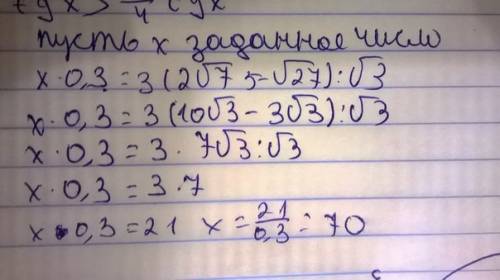 tg x > /4 ctg x
пусть x заданное число
x · 0,3 = 3 (2√75 - √27) : √3
x · 0,3 = 3 (10√3 - 3√3) : √3
x · 0,3 = 3 · 7√3 : √3
x · 0,3 = 3 · 7
x · 0,3 = 21 x = 21/0,3 = 70